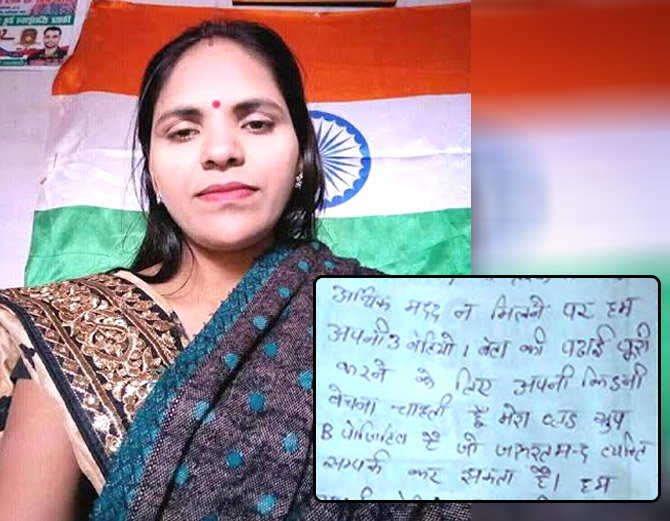 आर्थिक मदद न मिलने पर हम
अपनी 3 बेटियों 1 बेटा की पढाई पूरी
करने के लिए अपनी किडनी
बेचना चाहती हूँ मेरा ब्लड ग्रुप
B पोजिटिव है जो जरूरतमन्द व्यक्ति
सम्पर्क कर सकता है। हम